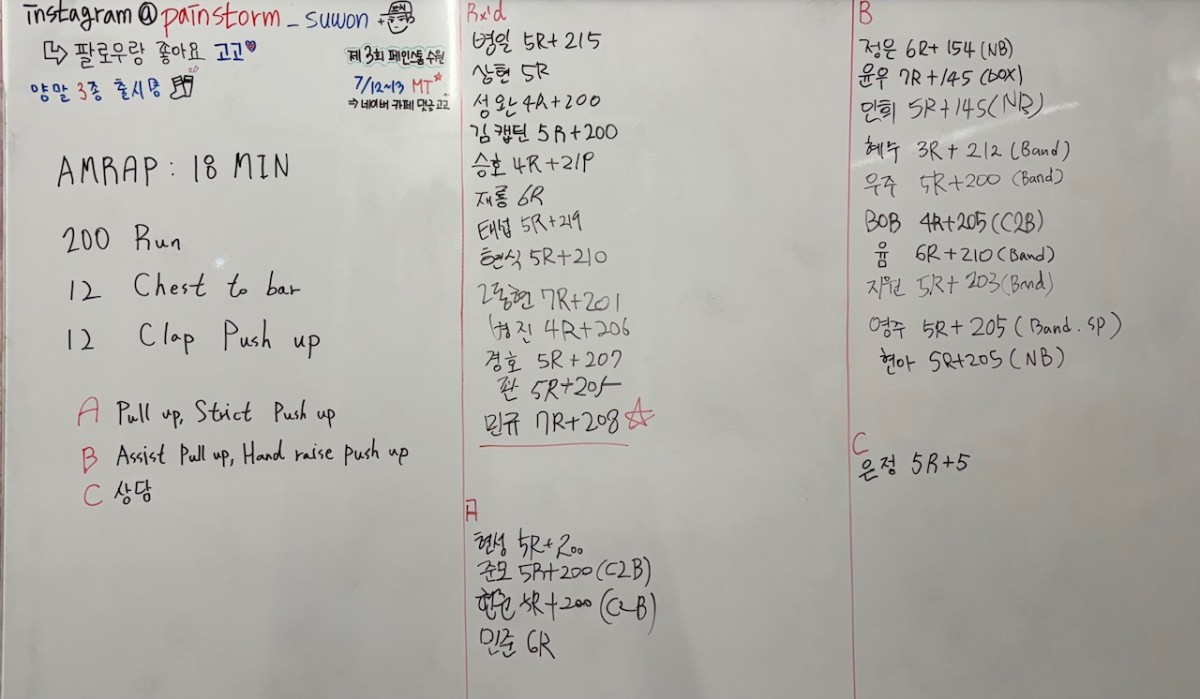 instagram @painstorm_suwon
↳ 팔로우랑 좋아요 고고♥
양말 3종 출시중
제 3회 페인스톰 수원
7/12~13 MT☆
⇒ 네이버 카페 댓글 고고
AMRAP : 18 MIN
200 Run
12 Chest to bar
12 Clap Push up
A Pull up, Strict Push up
B Assist Pull up, Hand raise push up
C 상담
Rx'd
병일 5R+215
상현 5R
성완 4R+200
김캡틴 5R+200
승호 4R+219
재룡 6R
태섭 5R+219
현식 5R+210
고동현 7R+201
병진 4R+206
경호 5R+207
판 5R+205
민규 7R+208☆
A
현성 5R+200
준모 5R+200 (C2B)
5R+200 (C2B)
민준 6R
B
정은 6R+154 (NB)
윤우 7R+145 (box)
민희 5R+145(NB)
혜수 3R+212 (Band)
우주 5R+200 (Band)
BOB 4R+205 (C2B)
윰 6R+210 (Band)
지원 5R+203 (Band)
영주 5R+205 (Band.sp)
현아 5R+205 (NB)
C
은정 5R+5